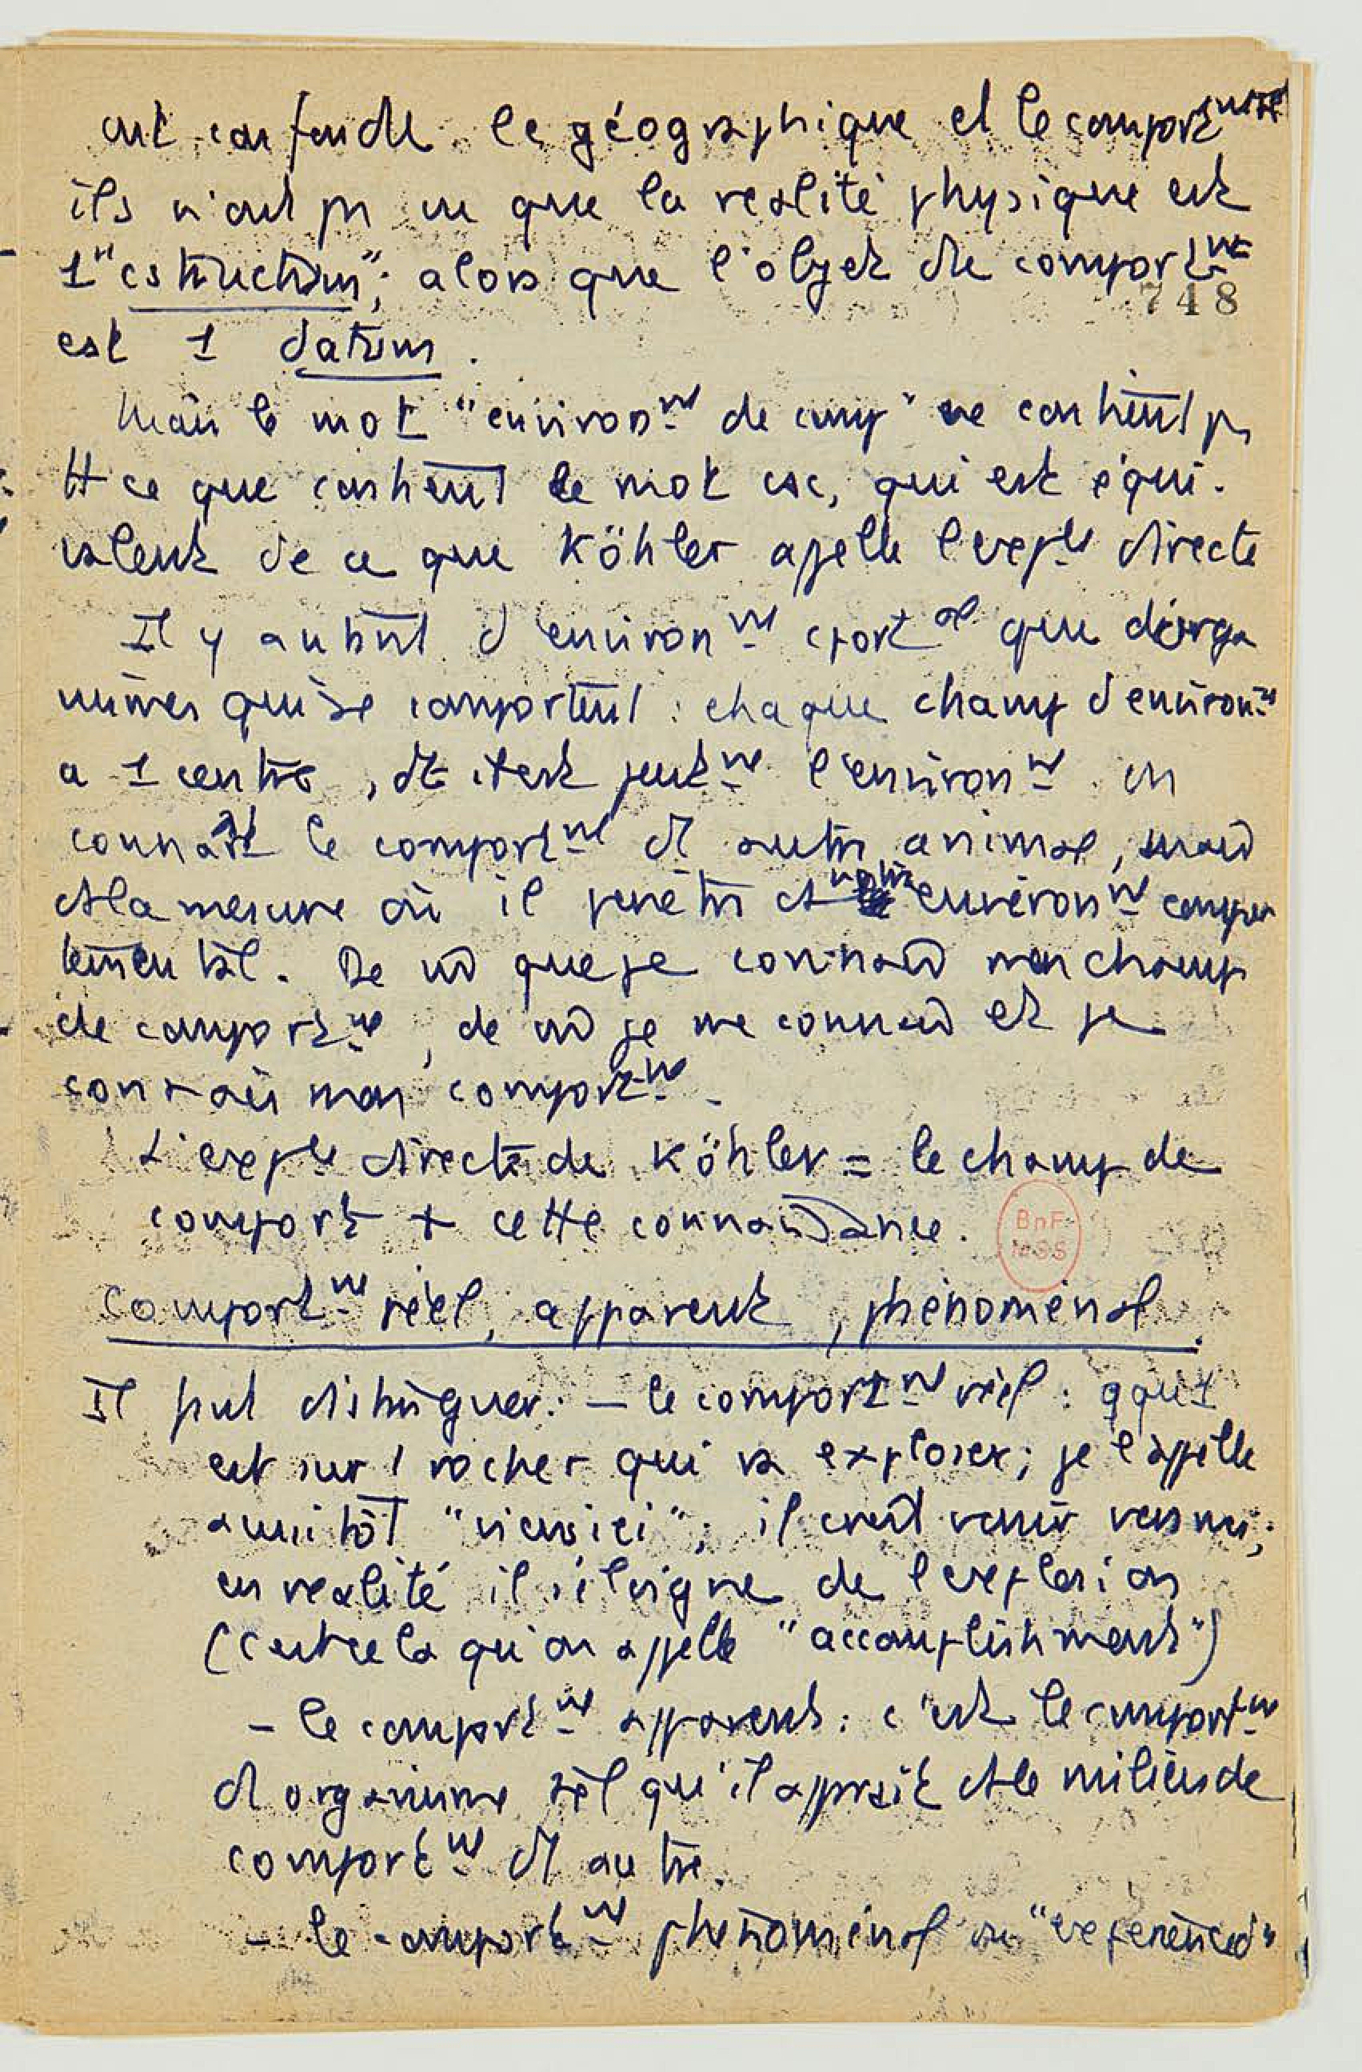 ont confondu le géographique et le comportmtal
ils n'ont ps vu que la réalité physique est
1 "cstruction"; alors que l'objet de comportmt
748
est 1 datum.
Mais le mot "environmt de comp" ne contient ps
tt ce que contient le mot csc, qui est équi-
valent de ce que Köhler appelle l'expce directe
Il y autant d'environmt cportal que d'orga
nismes qui se comportent : chaque champ d'environmt
a 1 centre, dt il est l'environmt. on
connaît le comportmt d1 autre animal, mais
ds la mesure où il pénètre ds notre environmt compor
temental. De m que je connais mon champ
de comportmt, de m je me connais et je
connais mon comportmt.
L'expce directe de Köhler = le champ de
comport + cette connaissance.
Comportmt réel, apparent, phénoménal.
Il faut distinguer : – le comportmt réel : qqu'1
est sur 1 rocher qui va exploser ; je l'appelle
aussitôt "viens ici" ; il croit venir vers moi ;
en réalité il s'éloigne de l'explosion
(c'est cela qu'on appelle "accomplishment")
– le comportmt apparent : c'est le comportmt
d1 organisme tel qu'il apprait ds le milieu de
comportmt d1 autre.
– le comportmt phénoménal ou "experienced"
BnF
MSS